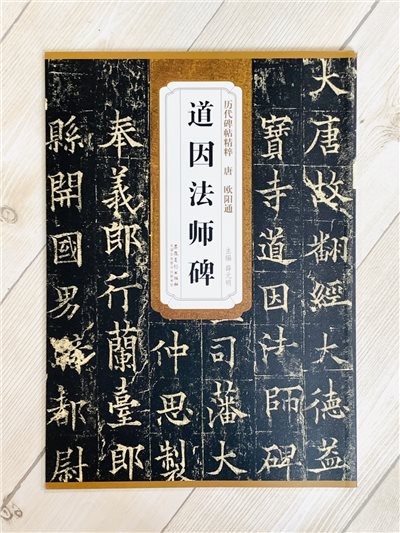 历代碑帖精粹 唐 欧阳通
道因法师碑
主编 薛元明
安徽美术出版社
大唐故翻經大德益
寶寺道因法師碑
司藩大
仲思製
奉義郎行蘭臺郎
縣開國男騎都尉